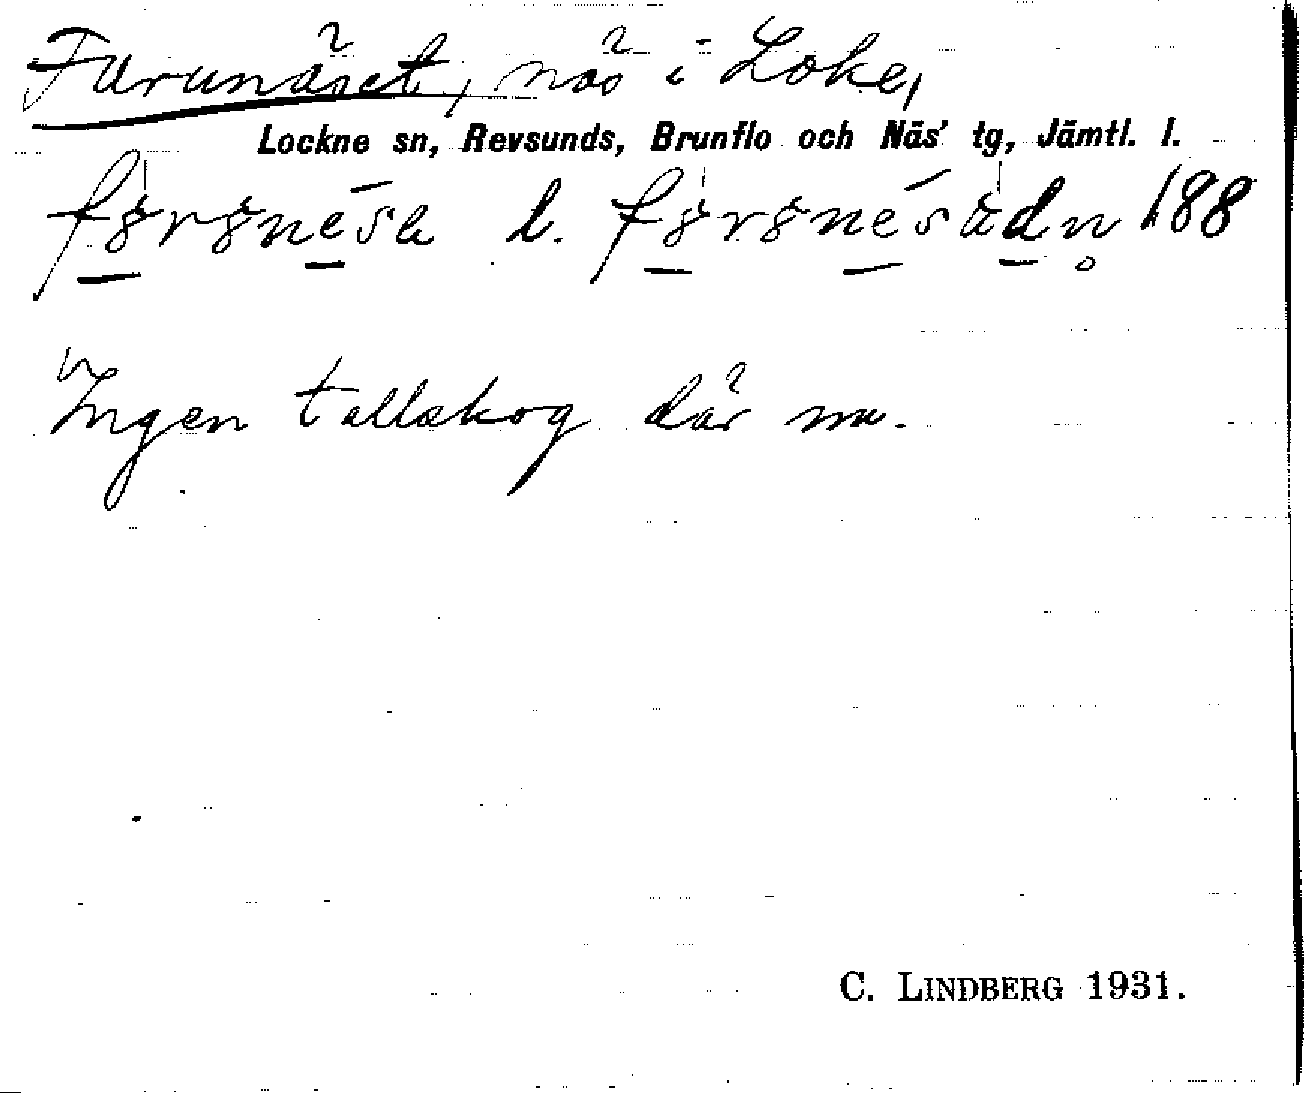 Furunäset, näs i Loke,
Lockne sn, Revsunds, Brunflo och Näs' tg, Jämtl. l.
l. 188
Ingen tallskog där nu.
C. LINDBERG 1931.